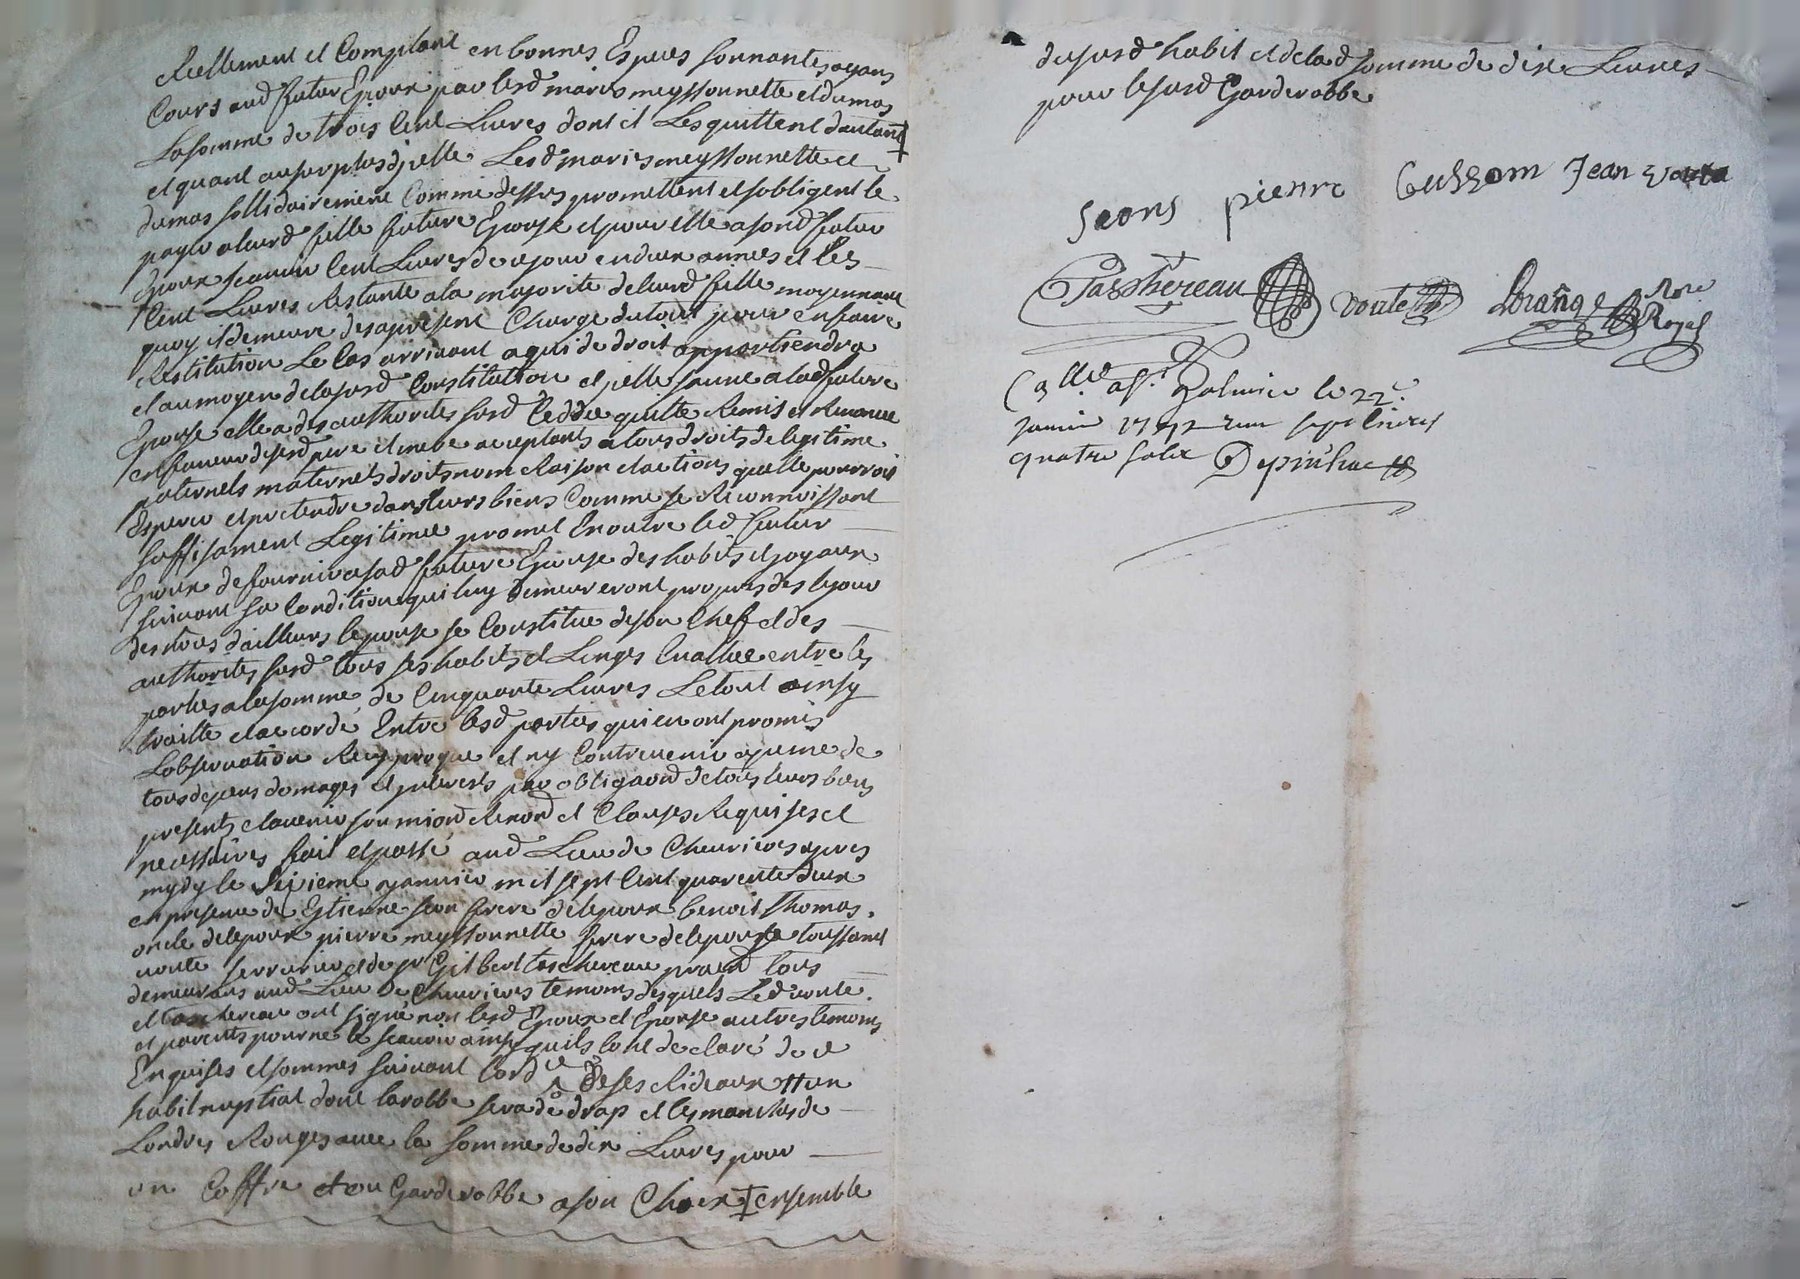 Reellement et Comptant en bonnes Especes sonnantes ayans
Cours aud futur Epoux par lesd maries meyssonnette et dumas
La somme de trois Cent Livres dont il Les quittent dautant
et quant au surplus djcelle Lesd maries meyssonnette et
dumas sollidairement Comme dessus promettent et sobligent le
payer a leurd fille future Epouse et pour elle a sond futur
Epoux scavoir Cent Livres de ce jour en deux années et les
Cent Livres Restante a la majorité de leurd fille moyennant
quoy il demeure des apresent Charge du tout pour en faire
Restitution Le Cas arrivant a qui de droit appartiendra
et au moyen de lasusd Constitution et jcelle sauve a lad future
Epouse elle a des authorites susd Cedde quitte Remis et Renoncé
en faveur desesd pere et mere acceptants a tous droits de legitime
paternels maternels droits nom Raison et actions quelle pourroit
Esperer et pretendre dans leurs biens Comme se Reconnoissant
suffisament Legitimée promet En outre led futur
Epoux de fournir a sad future Epouse des habits et joyaux
suivant sa Condition qui luy demeureront propres des le jour
des noces dailleurs lepouse se Constitue de son Chef et des
authorites susd tous ses habits et Linges Evalluee entre les
parties a la somme de Cinquante Livres Le tout ainsy
traitté et accorde Entre lesd parties qui en ont promis
Lobservation Reciproque et ny Contrevenir a peine de
tous depens domages et jnterests par obligaōn de tous leurs biens
presents et avenir soumiōn Renōn et Clauses Requises et
necessaires fait et passé aud Lieu de Cheurieres apres
mydy le sixieme janvier mil sept Cent quarente deux
en presence de Estienne Seon frere de lepoux benoit Thomas
oncle de lepoux pierre meyssonnette frere de lepouse toussaint
voute serrurier et de sr Gilbert taschereau pratn tous
demeurans aud Lieu de Cheurieres temoins desquels Led voute
et taschereau ont signé non lesd Epoux et Epouse autres temoins
et parents pour ne le scauoir ainsy quils lont declaré de ce
Enquises et sommes suivant Lord ce
de ses Rideaux # un
habit nuptial dont la robbe sera de drap et les manches de
Londres Rouges avec la somme de dix Livres pour
un Coffre et ou Garderobbe a son Choix ‡ ensemble
dususd habit et de lad somme de dix Livres
pour le susd Garderobbe
Seons pierre Cusson Jean vouta
Taschereau voute Lorange Nore
Royal
Calle as. Galmier le 22e
janvier 1742 recu sept livres
quatre sols Depinhac